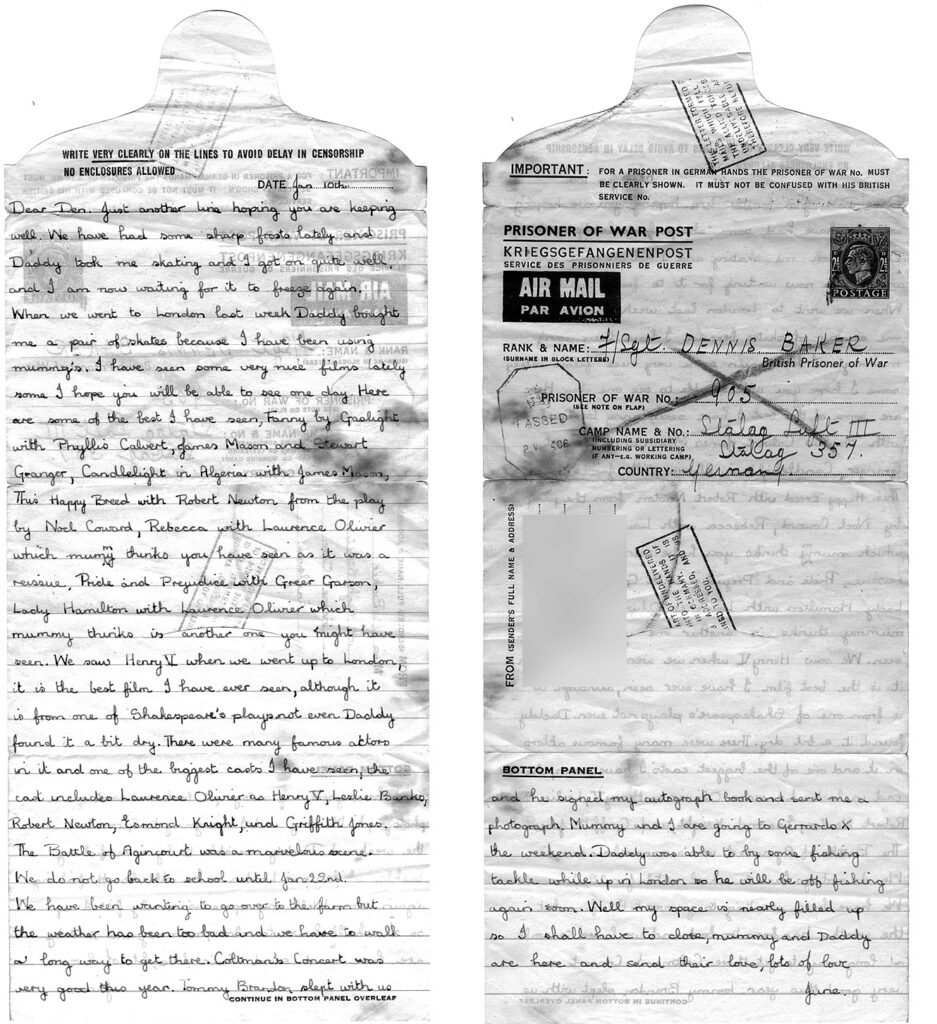 WRITE VERY CLEARLY ON THE LINES TO AVOID DELAY IN CENSORSHIP
NO ENCLOSURES ALLOWED
DATE Jan 10th
Dear Den. Just another line hoping you are keeping
well. We have had some sharp frosts lately and
Daddy took me skating and I got on quite well
and I am now waiting for it to freeze again,
When we went to London last week Daddy bought
me a pair of skates because I have been using
mummy's. I have seen some very nice films lately
some I hope you will be able to see one day. Here
are some of the best I have seen, Fanny by Gaslight
with Phyllis Calvert, James Mason and Stewart
Granger, Candlelight in Algeria with James Mason,
This Happy Breed with Robert Newton from the play
by Noel Coward, Rebecca with Laurence Olivier
which mummy thinks you have seen as it was a
reissue, Pride and Prejudice with Greer Garson,
Lady Hamilton with Laurence Olivier which
mummy thinks is another one you might have
seen. We saw Henry V when we went up to London,
it is the best film I have ever seen, although it
is from one of Shakespeare's plays not even Daddy
found it a bit dry. There were many famous actors
in it and one of the biggest casts I have seen, the
cast includes Laurence Olivier as Henry V, Leslie Banks,
Robert Newton, Esmond Knight, and Griffith Jones.
The Battle of Agincourt was a marvelous scene.
We do not go back to school until Jan 22nd.
We have been wanting to go over to the farm but
the weather has been too bad and we have to walk
a long way to get there. Coltman's Concert was
very good this year. Tommy Brandon slept with us
CONTINUE IN BOTTOM PANEL OVERLEAF
IMPORTANT: FOR A PRISONER IN GERMAN HANDS THE PRISONER OF WAR No. MUST
BE CLEARLY SHOWN. IT MUST NOT BE CONFUSED WITH HIS BRITISH
SERVICE No.
PRISONER OF WAR POST
KRIEGSGEFANGENENPOST
SERVICE DES PRISONNIERS DE GUERRE
AIR MAIL
PAR AVION
POSTAGE
RANK & NAME: F/Sgt. DENNIS BAKER
(SURNAME IN BLOCK LETTERS)
British Prisoner of War
PRISONER OF WAR No.: 905
(SEE NOTE ON FLAP)
PASSED
CAMP NAME & No.: Stalag Luft III
(INCLUDING SUBSIDIARY
NUMBERING OR LETTERING
IF ANY—E.G. WORKING CAMP).
Stalag 357.
COUNTRY: Germany.
FROM (SENDER'S FULL NAME & ADDRESS)
BOTTOM PANEL
and he signed my autograph book and sent me a
photograph. Mummy and I are going to Gerrards X
the weekend. Daddy was able to by some fishing
tackle while up in London so he will be off fishing
again soon. Well my space is nearly filled up
so I shall have to close, mummy and Daddy
are here and send their love, lots of love
June.